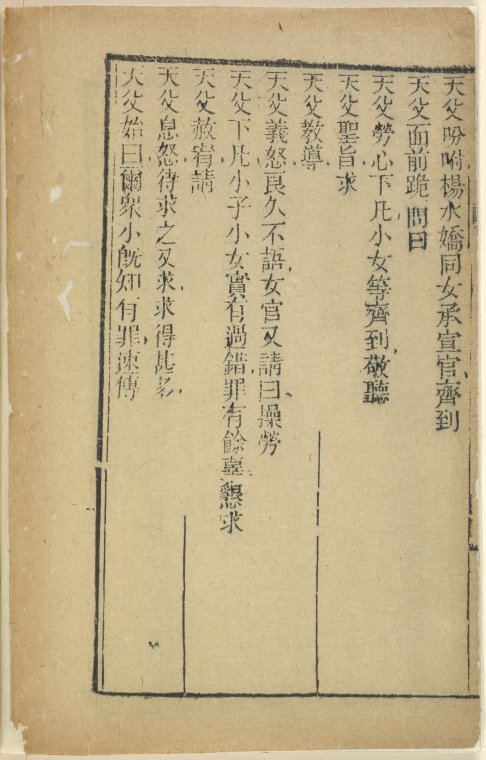 天父吩咐楊水嬌同女承宣官、齊到
天父面前跪問曰
天父勞心下凡、小女等齊到、敬聽
天父聖旨求
天父教導、
天父義怒、良久不語、女官又請曰、操勞
天父下凡、小子小女實有過錯、罪有餘辜、懇求
天父赦宥、請
天父息怒、待求之又求、求得甚多、
天父始曰、爾眾小既知有罪、速傳